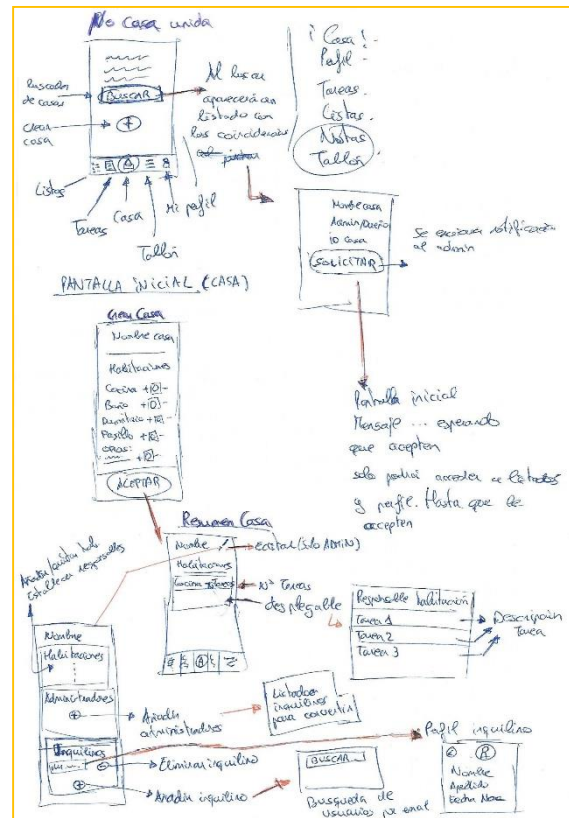 No casa unida
Buscador
de casas
BUSCAR
Crear
casa
Listas
Tareas
Casa
Tablón
Mi perfil
Al buscar
aparecerá un
listado con
las coincidencias
¡Casa!-
Perfil-
Tareas.
Listas.
Notas
Tablón.
Nombre casa
Admin/Dueño
ID casa
SOLICITAR
Se enviara notificación
al admin
PANTALLA INICIAL (CASA)
Crear Casa
Nombre casa
Habitaciones
Cocina +0-
Baño +0-
Dormitorio +0-
Pasillo +0-
otras:
ACEPTAR
Pantalla inicial
Mensaje ... esperando
que acepten
solo podrá acceder a
y perfil. Hasta que le
acepten
Resumen Casa
Nombre
Editar (Solo ADMIN)
Habitaciones
Cocina
Nº Tareas
desplegable
Añadir/quitar hab
Establecer responsables
Responsable habitación
Tarea 1
Tarea 2
Tarea 3
Descripción
Tarea
Nombre
Habitaciones
Administradores
Añadir
administradores
Listado
inquilinos
para convertir
Inquilinos
Eliminar inquilino
Añadir inquilino
BUSCAR
Busqueda de
usuarios por email
Perfil inquilino
Nombre
Apellido
Fecha Nac